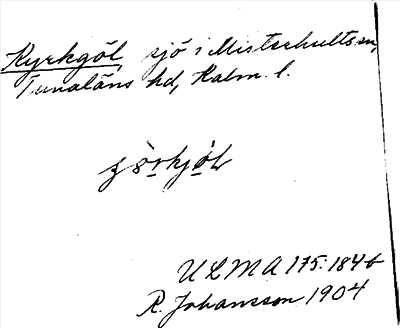 Kyrkgöl, sjö i Misterhults sn,
Tunaläns hd, Kalm. l.
ULMA 175:184b
R. Johansson 1904